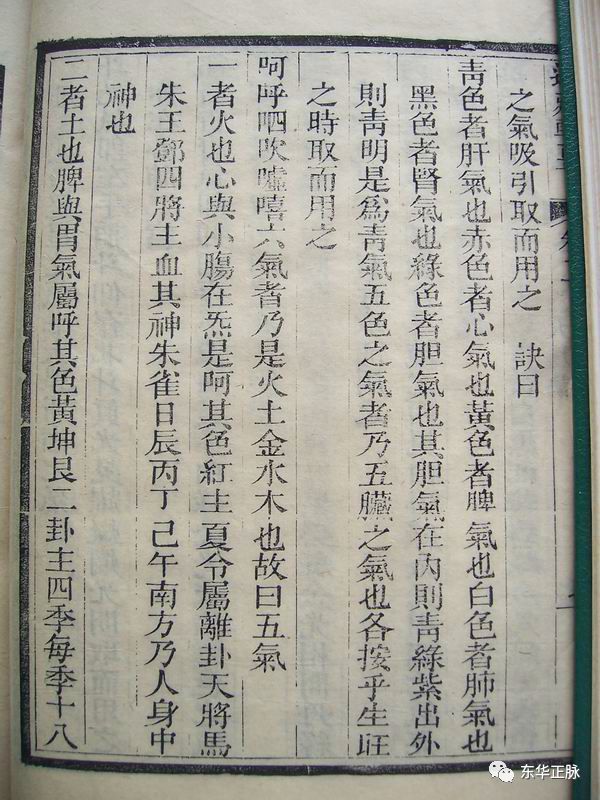 之氣吸引取而用之　訣曰
青色者肝氣也赤色者心氣也黃色者脾氣也白色者肺氣也
黑色者腎氣也綠色者胆氣也其胆氣在內則青綠紫出外
則青明是爲青氣五色之氣者乃五臟之氣也各按乎生旺
之時取而用之
呵呼呬吹噓嘻六氣者乃是火土金水木也故曰五氣
一者火也心與小腸在炁是呵其色紅主夏令屬離卦天將馬
朱王鄧四將主血其神朱雀日辰丙丁己午南方乃人身中
神也
二者土也脾與胃氣屬呼其色黃坤艮二卦主四季每季十八
东华正脉